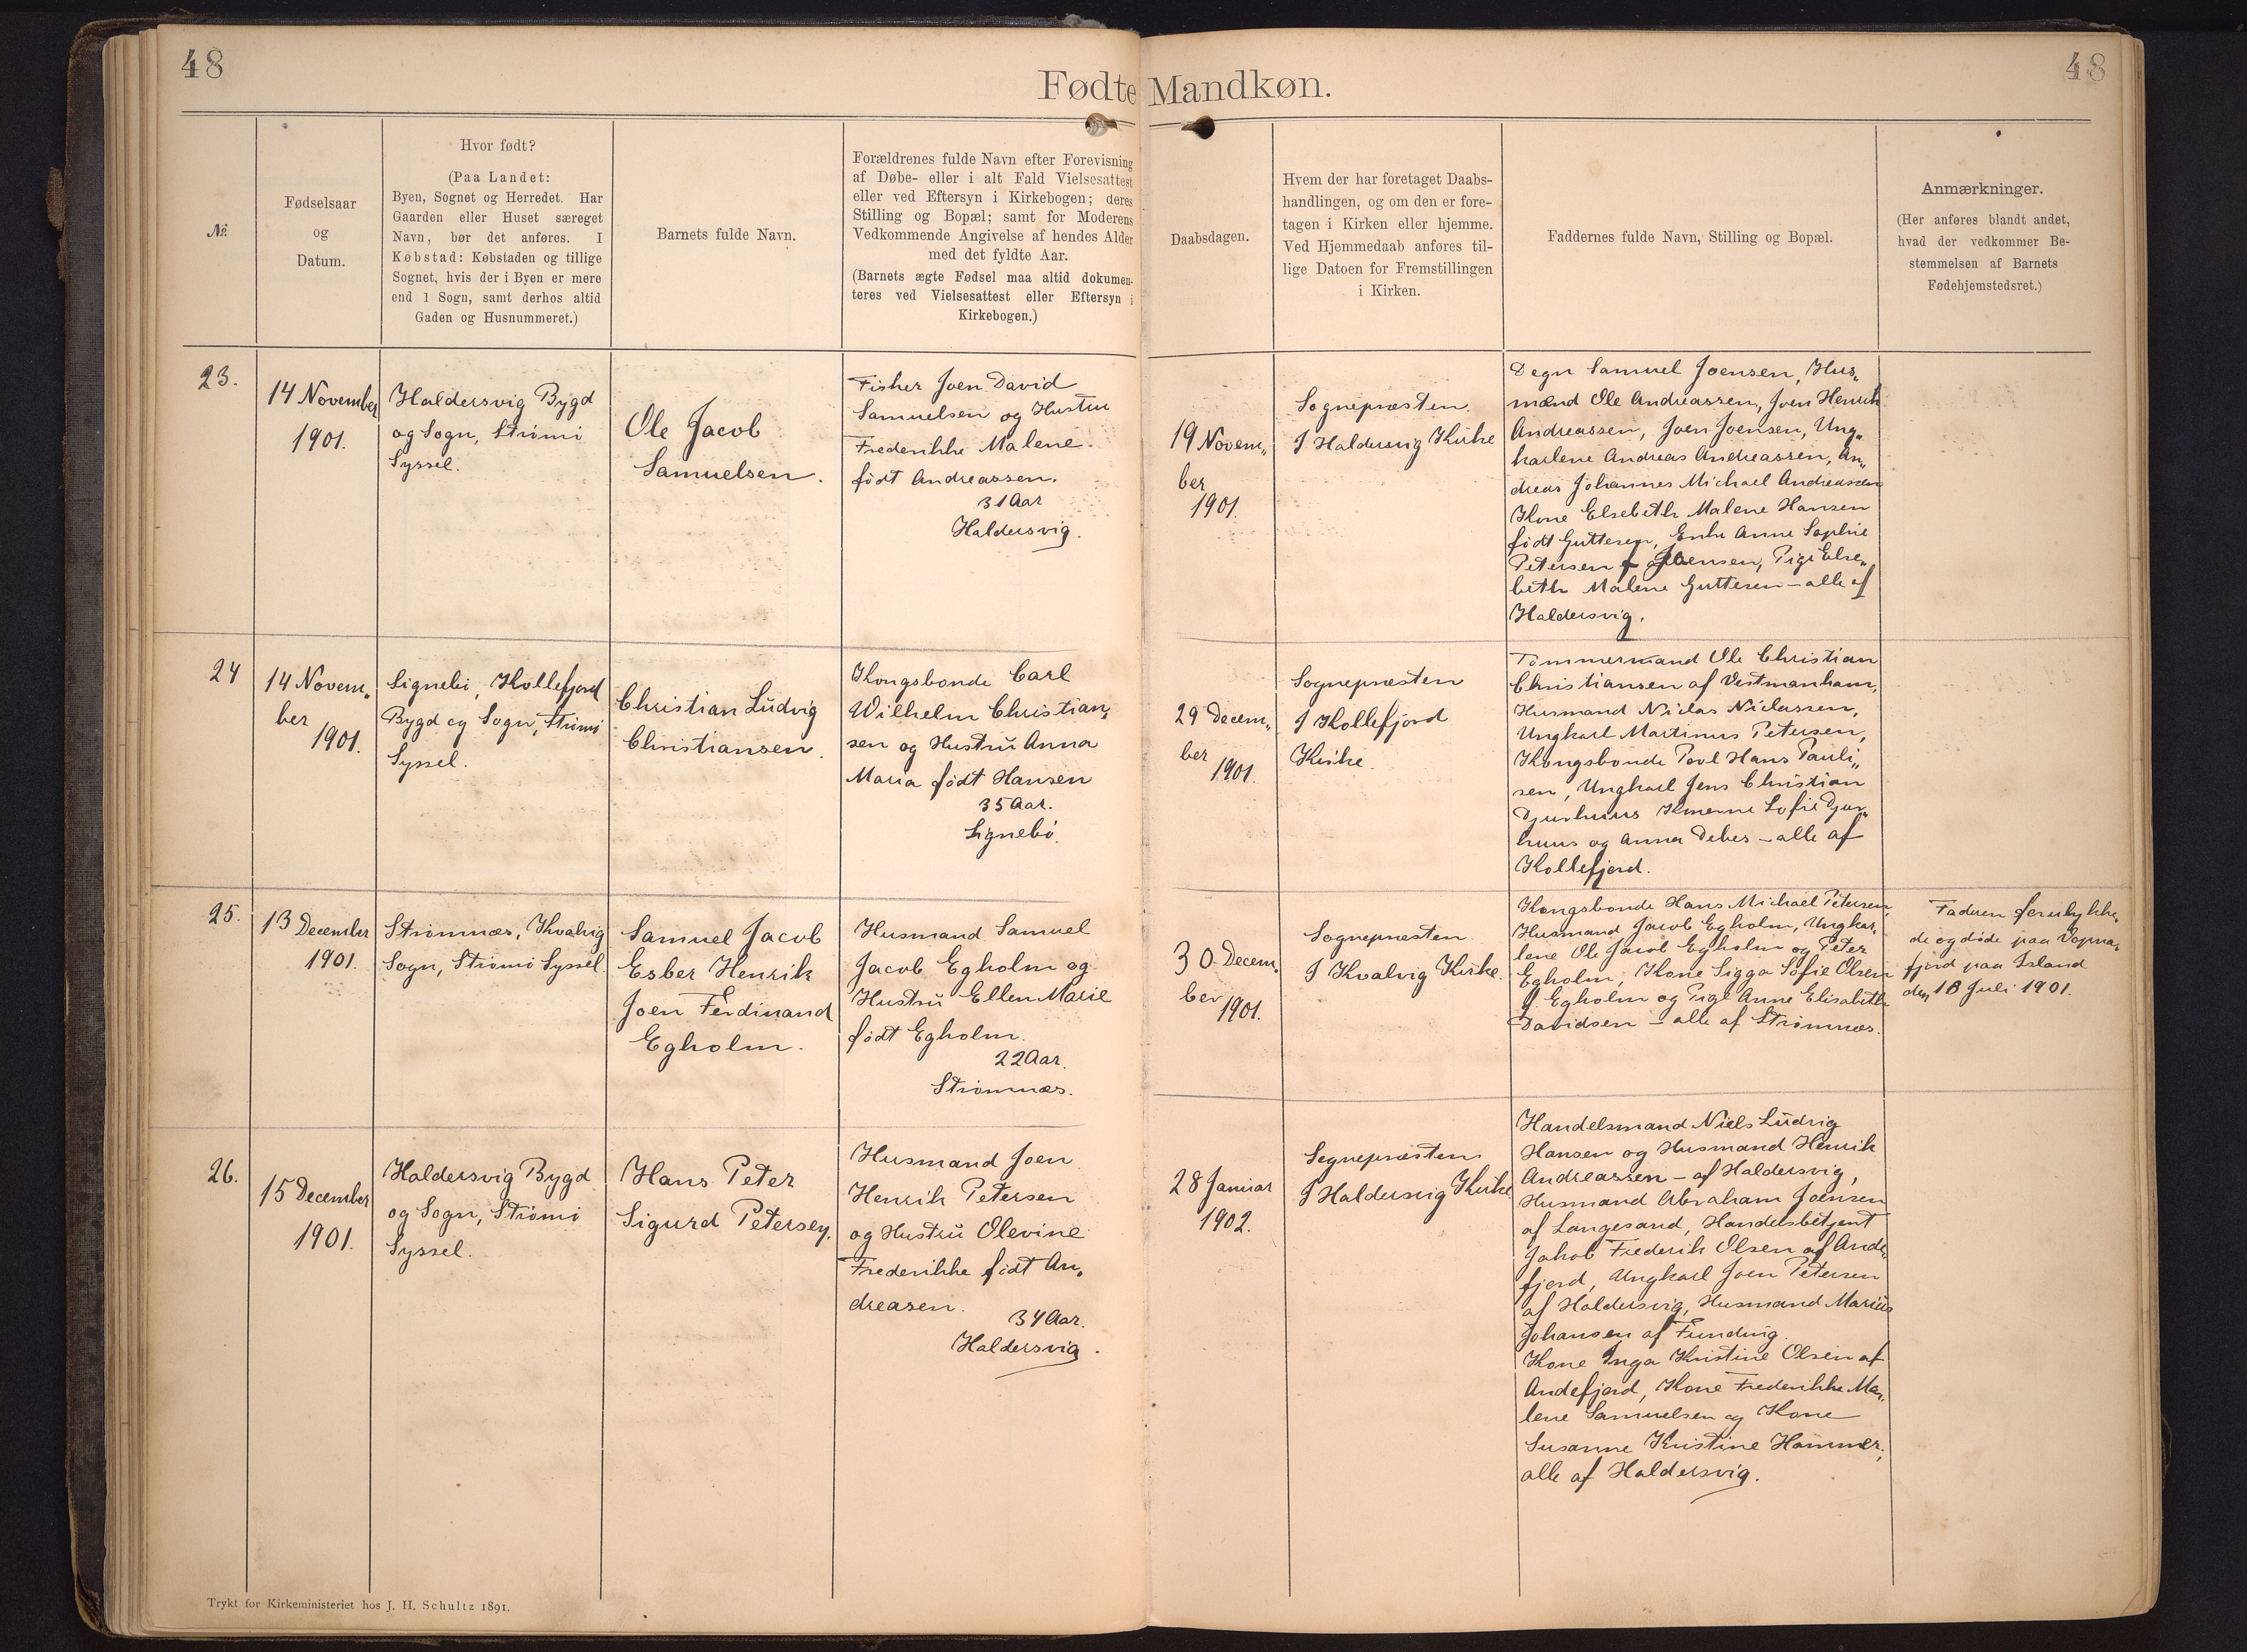 48
48
Fødte Mandkøn.
№
Fødselsaar
og
Datum.
Hvor født?
(Paa Landet:
Byen, Sognet og Herredet. Har
Gaarden eller Huset særeget
Navn, bør det anføres. I
Købstad: Købstaden og tillige
Sognet, hvis der i Byen er mere
end 1 Sogn, samt derhos altid
Gaden og Husnummeret.)
Barnets fulde Navn.
Forældrenes fulde Navn efter Forevisning
af Døbe- eller i alt Fald Vielsesattest
eller ved Eftersyn i Kirkebogen; deres
Stilling og Bopæl; samt for Moderens
Vedkommende Angivelse af hendes Alder
med det fyldte Aar.
(Barnets ægte Fødsel maa altid dokumen-
teres ved Vielsesattest eller Eftersyn i
Kirkebogen.)
Daabsdagen.
Hvem der har foretaget Daabs-
handlingen, og om den er fore-
tagen i Kirken eller hjemme.
Ved Hjemmedaab anføres til-
lige Datoen for Fremstillingen
i Kirken.
Faddernes fulde Navn, Stilling og Bopæl.
Anmærkninger.
(Her anføres blandt andet,
hvad der vedkommer Be-
stemmelsen af Barnets
Fødehjemstedsret.)
23.
14 November
1901.
Haldersvig Bygd
og Sogn, Strømø
Syssel.
Ole Jacob
Samuelsen.
Fisher Joen David
Samuelsen og Hustru
Frederikke Malene
født Andreassen.
31 Aar
Haldersvig.
19 Novem„
ber
1901.
Sognepræsten.
I Haldersvig Kirke
Degn Samuel Joensen, Hus„
mænd Ole Andreassen, Joen Henrik
Andreassen, Joen Joensen, Ung„
karlene Andreas Andreassen, An„
dreas Johannes Michael Andreassen
Kone Elsebeth Malene Hansen
født Guttesen, Enke Anne Sophie
Petersen f Joensen, Pige Else„
beth Malene Guttesen – alle af
Haldersvig.
24
14 Novem„
ber
1901.
Signebø, Kollefjord
Bygd og Sogn, Strømø
Syssel.
Christian Ludvig
Christiansen.
Kongsbonde Carl
Wilhelm Christian„
sen og Hustru Anna
Maria født Hansen
35 Aar.
Signebø.
29 Decem„
ber
1901.
Sognepræsten
I Kollefjord
Kirke.
Tømmermand Ole Christian
Christiansen af Vestmanham,
Husmand Niclas Niclassen,
Ungkarl Martinus Petersen,
Kongsbonde Povl Hans Pauli„
sen, Ungkarl Jens Christian
Djurhuus Konerne Sofie Djur„
huus og Anna Debes – alle af
Kollefjord.
25.
13 December
1901.
Strømnæs, Kvalvig
Sogn, Strømø Syssel
Samuel Jacob
Esber Henrik
Joen Ferdinand
Egholm.
Husmand Samuel
Jacob Egholm og
Hustru Ellen Marie
født Egholm.
22 Aar.
Strømnæs.
30 Decem„
ber
1901.
Sognepræsten
I Kvalvig Kirke.
Kongsbonde Hans Michael Petersen,
Husmand Jacob Egholm, Ungkar„
lene Ole Jacob Egholm og Peter
Egholm, Kone Sigga Sofie Olsen
f. Egholm og Pige Anne Elisabeth
Davidsen – alle af Strømnæs.
Faderen forulykke„
de og døde paa Vopna„
fjord paa Island
den 18 Juli 1901.
26.
15 December
1901.
Haldersvig Bygd
og Sogn, Strømø
Syssel.
Hans Peter
Sigurd Petersen.
Husmand Joen
Henrik Petersen
og Hustru Olevine
Frederikke født An„
dreasen.
34 Aar.
Haldersvig.
28 Januar
1902.
Sognepræsten
I Haldersvig Kirke
Handelsmand Niels Ludvig
Hansen og Husmand Henrik
Andreassen – af Haldersvig,
Husmand Abraham Joensen
af Langesand, Handelsbetjent
Jakob Frederik Olsen af Ande„
fjord, Ungkarl Joen Petersen
af Haldersvig, Husmand Marius
Johansen af Funding.
Kone Inga Kristine Olsen af
Andefjord, Kone Frederikke Ma„
lene Samuelsen og Kone
Susanne Kristine Hammer,
alle af Haldersvig.
Trykt for Kirkeministeriet hos J. H. Schultz 1891.